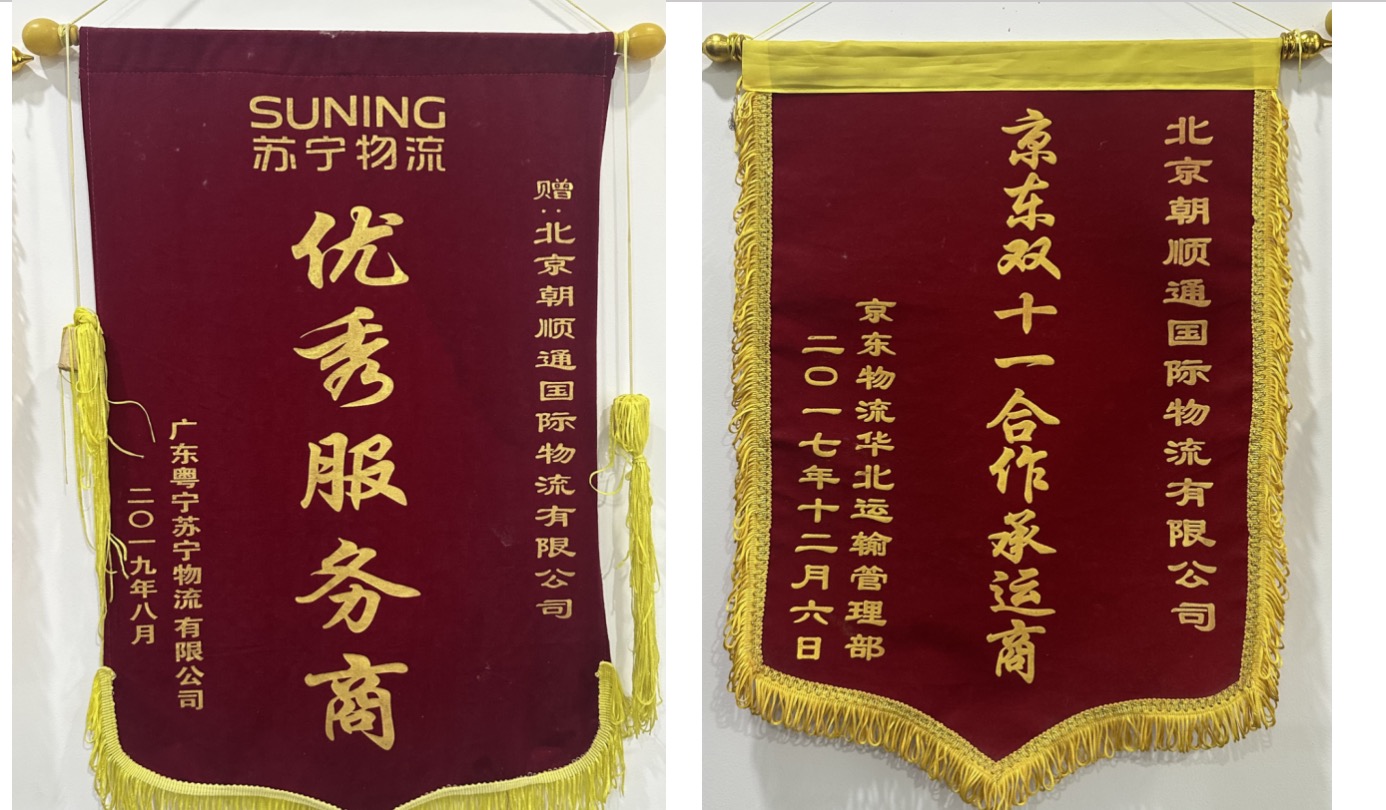 SUNING
苏宁物流
赠：北京朝顺通国际物流有限公司
优秀服务商
广东粤宁苏宁物流有限公司
二〇一九年八月
北京朝顺通国际物流有限公司
京东双十一合作承运商
京东物流华北运输管理部
二〇一七年十二月六日